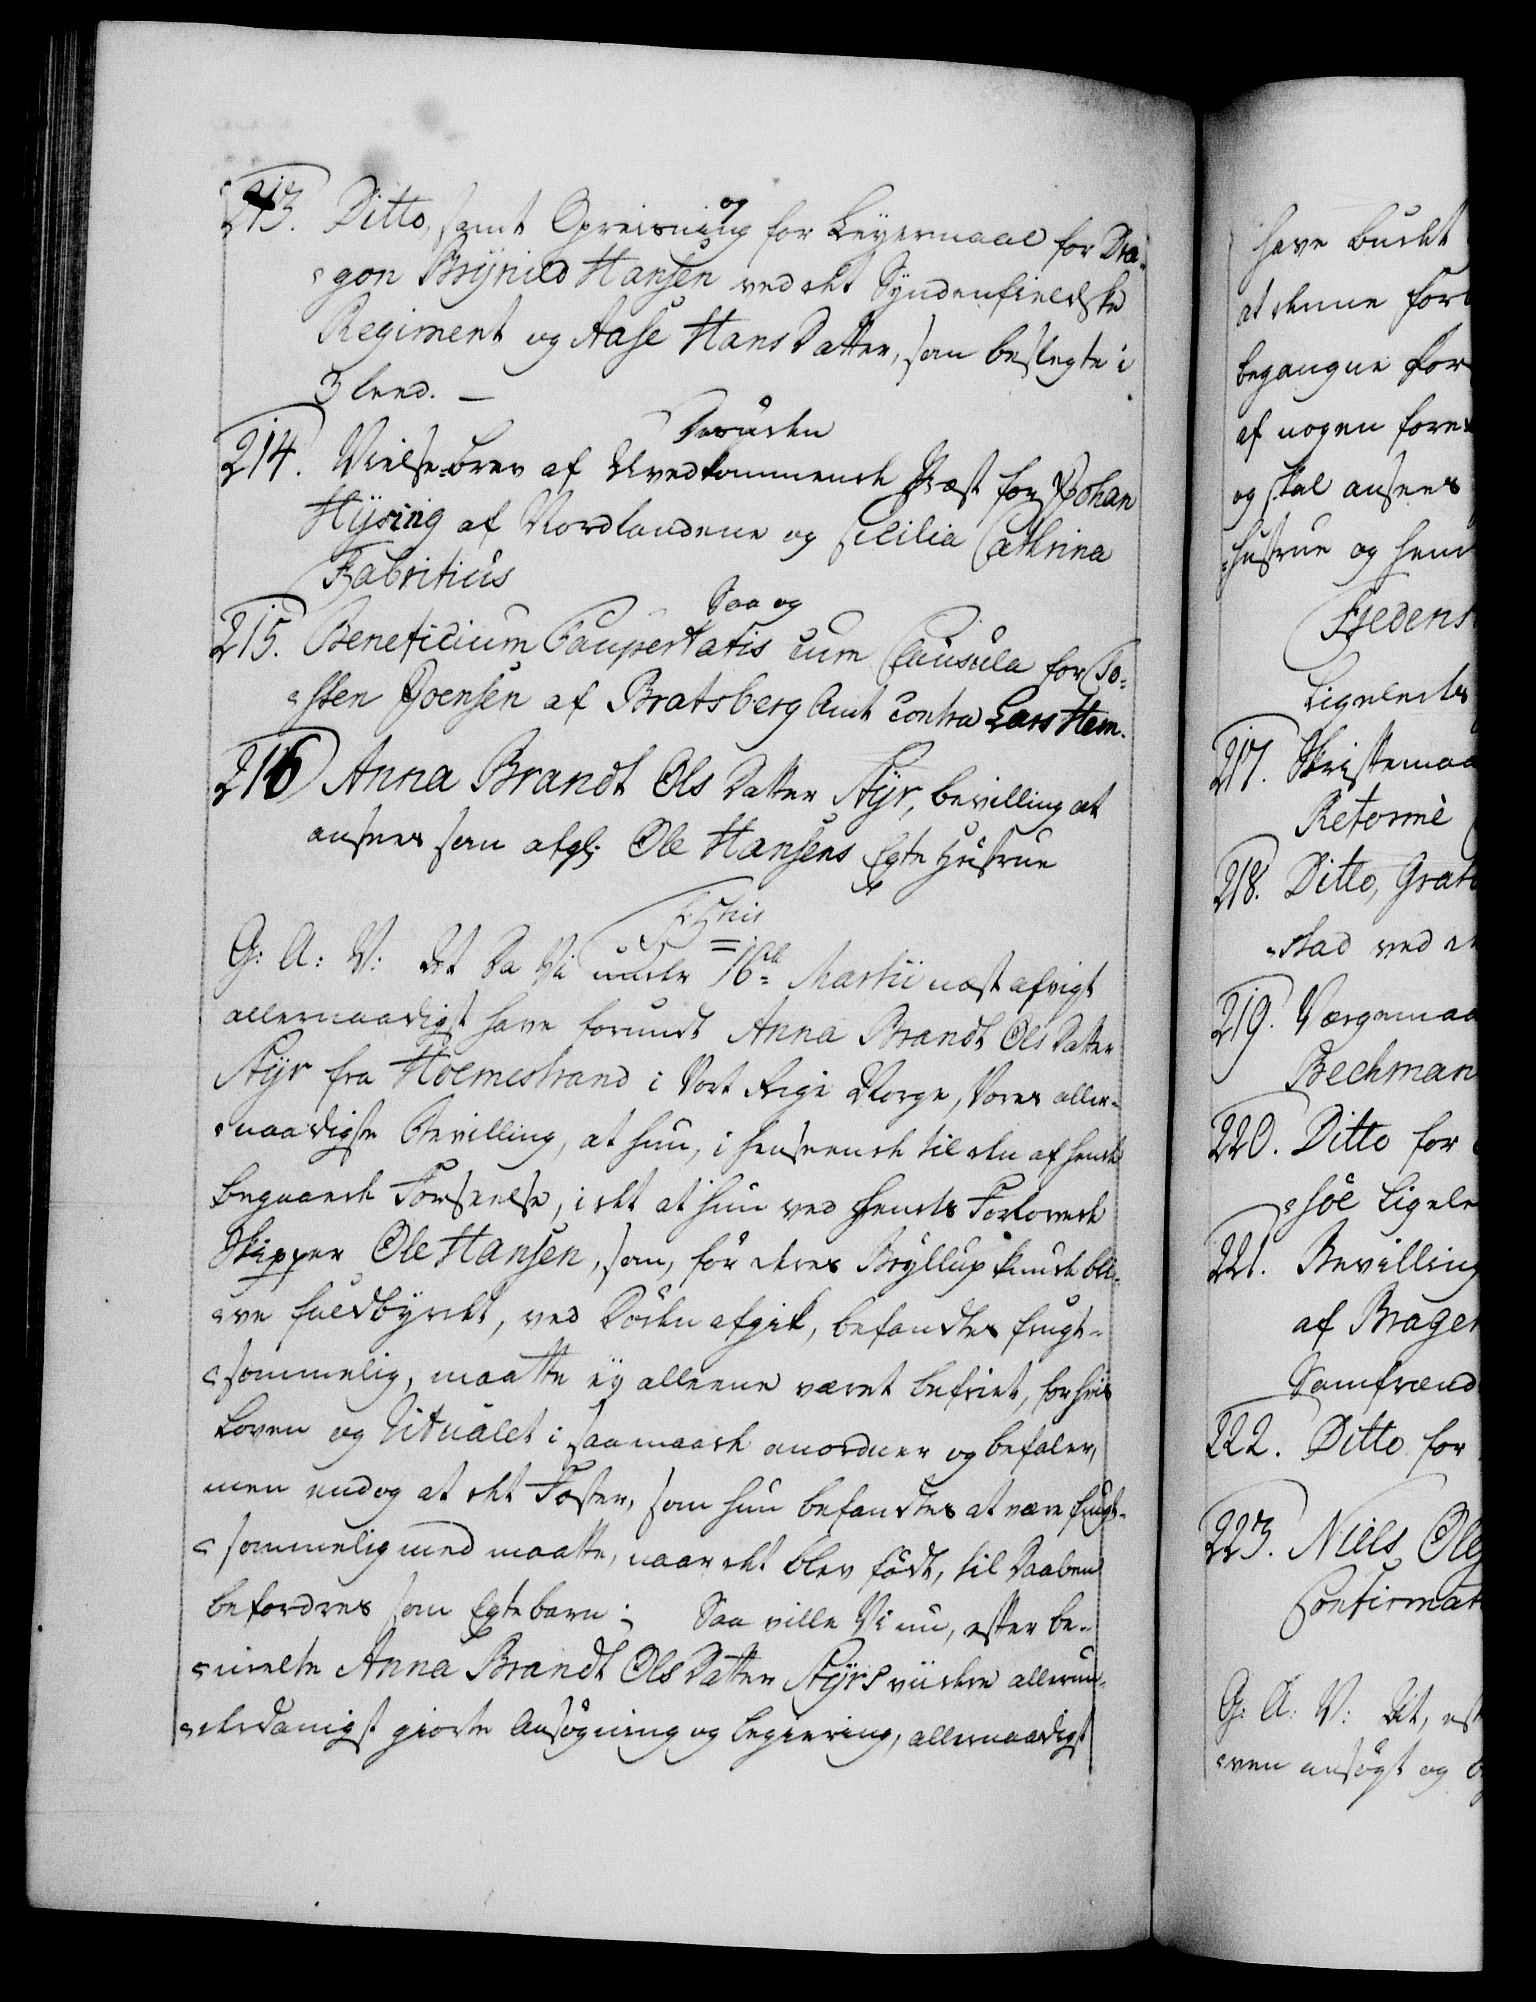 213. Ditto, samt Opreisning for Leyermaal for Dra-
og
gon Brynild Hansen ved det Syndenfieldske
Regiment og Aase Hans Datter, som beslegte i
3 leed. —
Desuden
214. Vielse-brev af Uvedkommende Præst for Johan
Hysing af Nordlandene og Cicilia Cathrina
Fabritius
Saa og
215. Beneficium Paupertatis cum Clausula for To-
sten Joensen af Bratsberg Amt contra Lars Hem.
216 Anna Brandt Ols Datter Styr, bevilling at
ansees som afg: Ole Hansens Egte Hustrue
G: A: V: At Da Vi under 16de Martii næst afvigt
allernaadigst have forundt Anna Brandt Ols Datter
Styr fra Holmestrand i Vort Rige Norge, Vores aller-
naadigste Bevilling, at hun, i henseende til den af hende
begaaede Forseelse, i det at hun ved hendes Forlovede
Skipper Ole Hansen, som, før deres Bryllup kunde bli-
ve fuldbyrdet, ved Døden afgik, befandtes frugt-
sommelig, maatte ey alleene været befriet, for hvis
Loven og Ritualet i saa maade anordner og befaler,
men endog at det Foster, som hun befandtes at være frugt-
sommelig med maatte, naar det blev født, til Daaben
befordres som Egtebarn; Saa ville Vi nu, efter be-
meldte Anna Brandt Ols Datter Styrs videre allerun-
derdanigst giorte Ansøgning og begiering, allernaadigst
have budet
at denne for
begangne For
af nogen fore
og skal ansees
Hustrue og hen
Fredens
Ligeledes
217. Skriftemaa
Reformè
218. Ditto, Grat
stad ved
219. Værgemaa
Bechman
220. Ditto for
søe Ligele
221. Bevilling
af Brager
Samfrænd
222. Ditto for
223. Niels Ole
Confirmat
G: A: V: At, eft
ven ansøgt og b